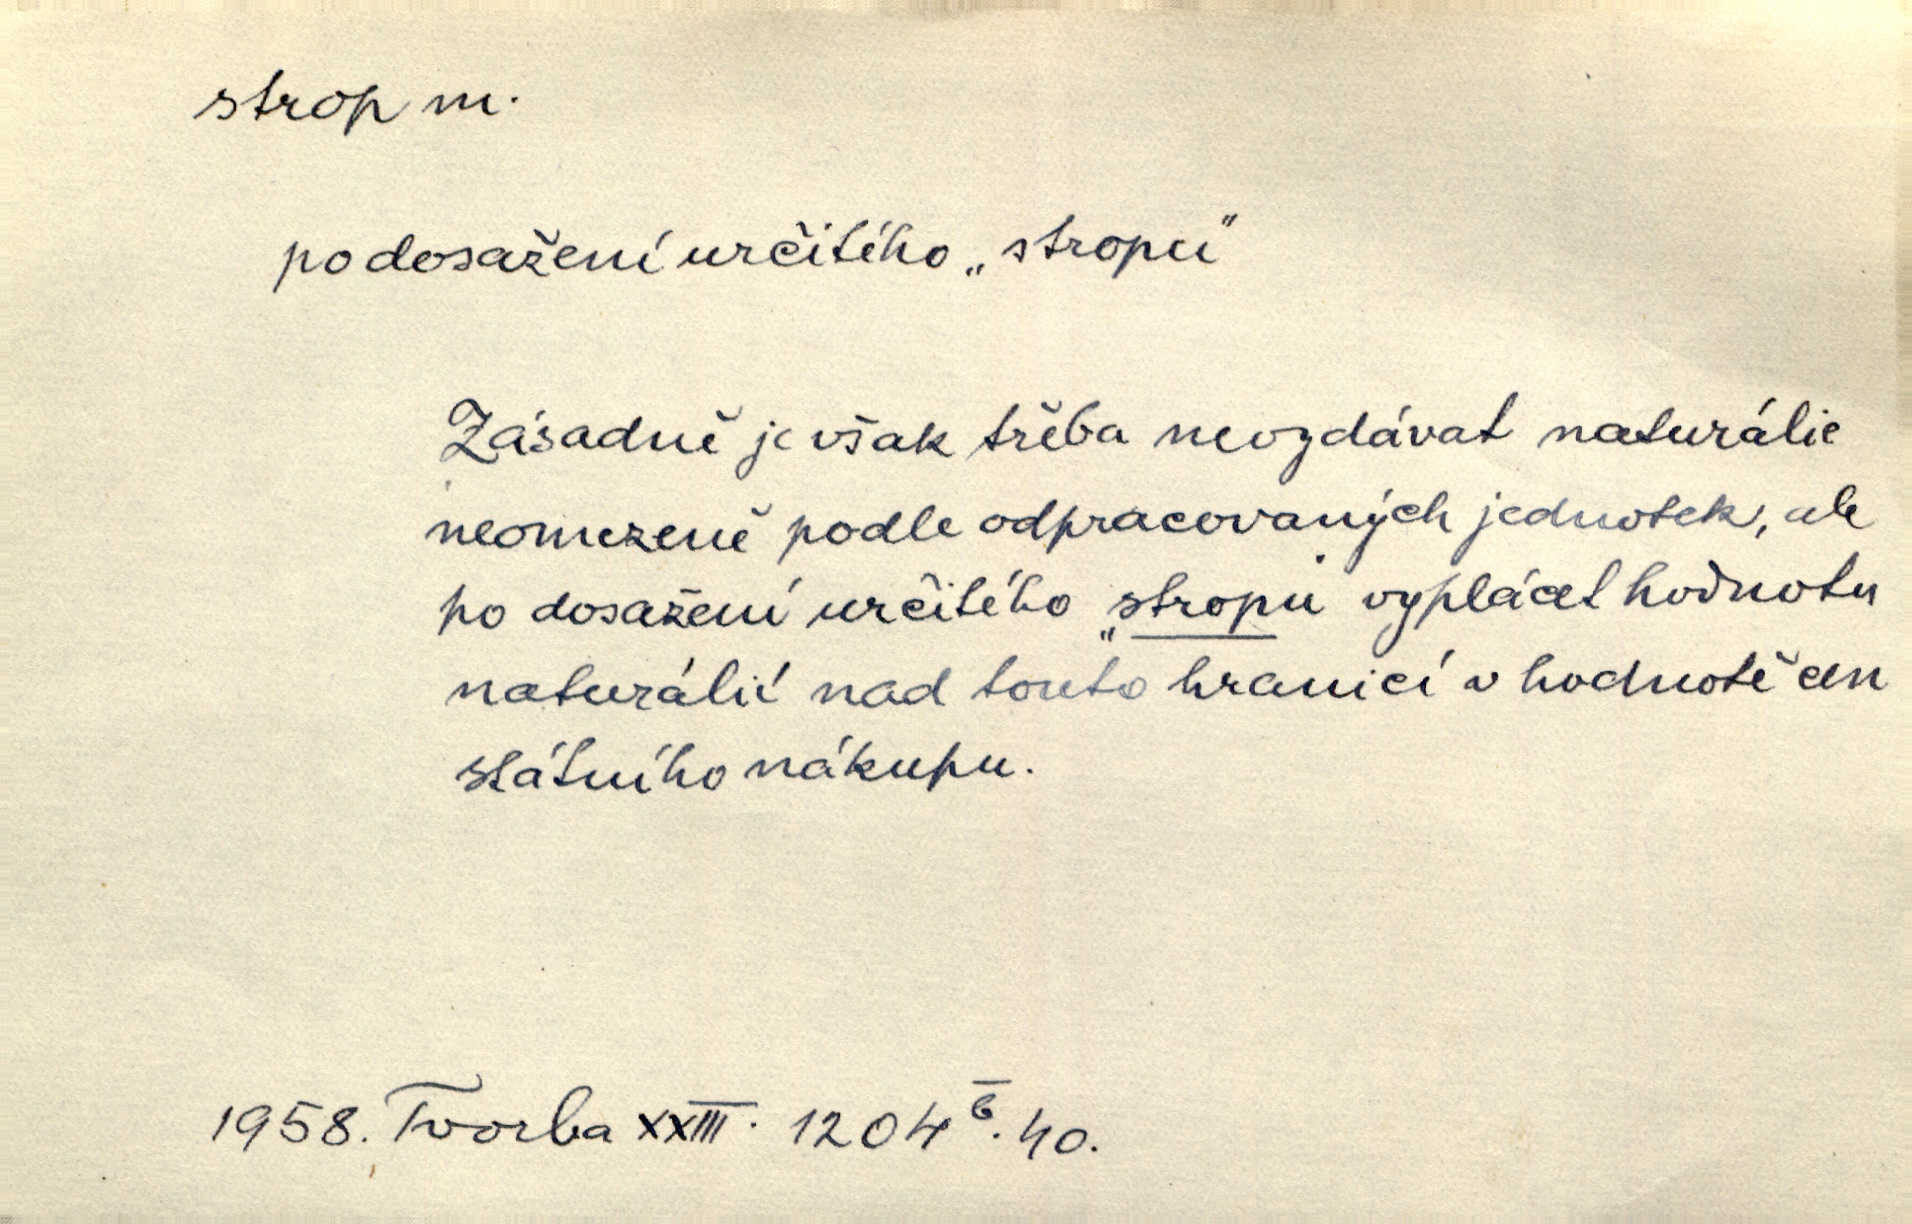 strop m.
po dosažení určitého „stropu"
Zásadně je však třeba nevydávat naturálie
neomezeně podle odpracovaných jednotek, ale
po dosažení určitého „stropu" vyplácet hodnotu
naturálií nad touto hranicí v hodnotě cen
státního nákupu.
1958. Tvorba XXIII. 1204 b. 40.